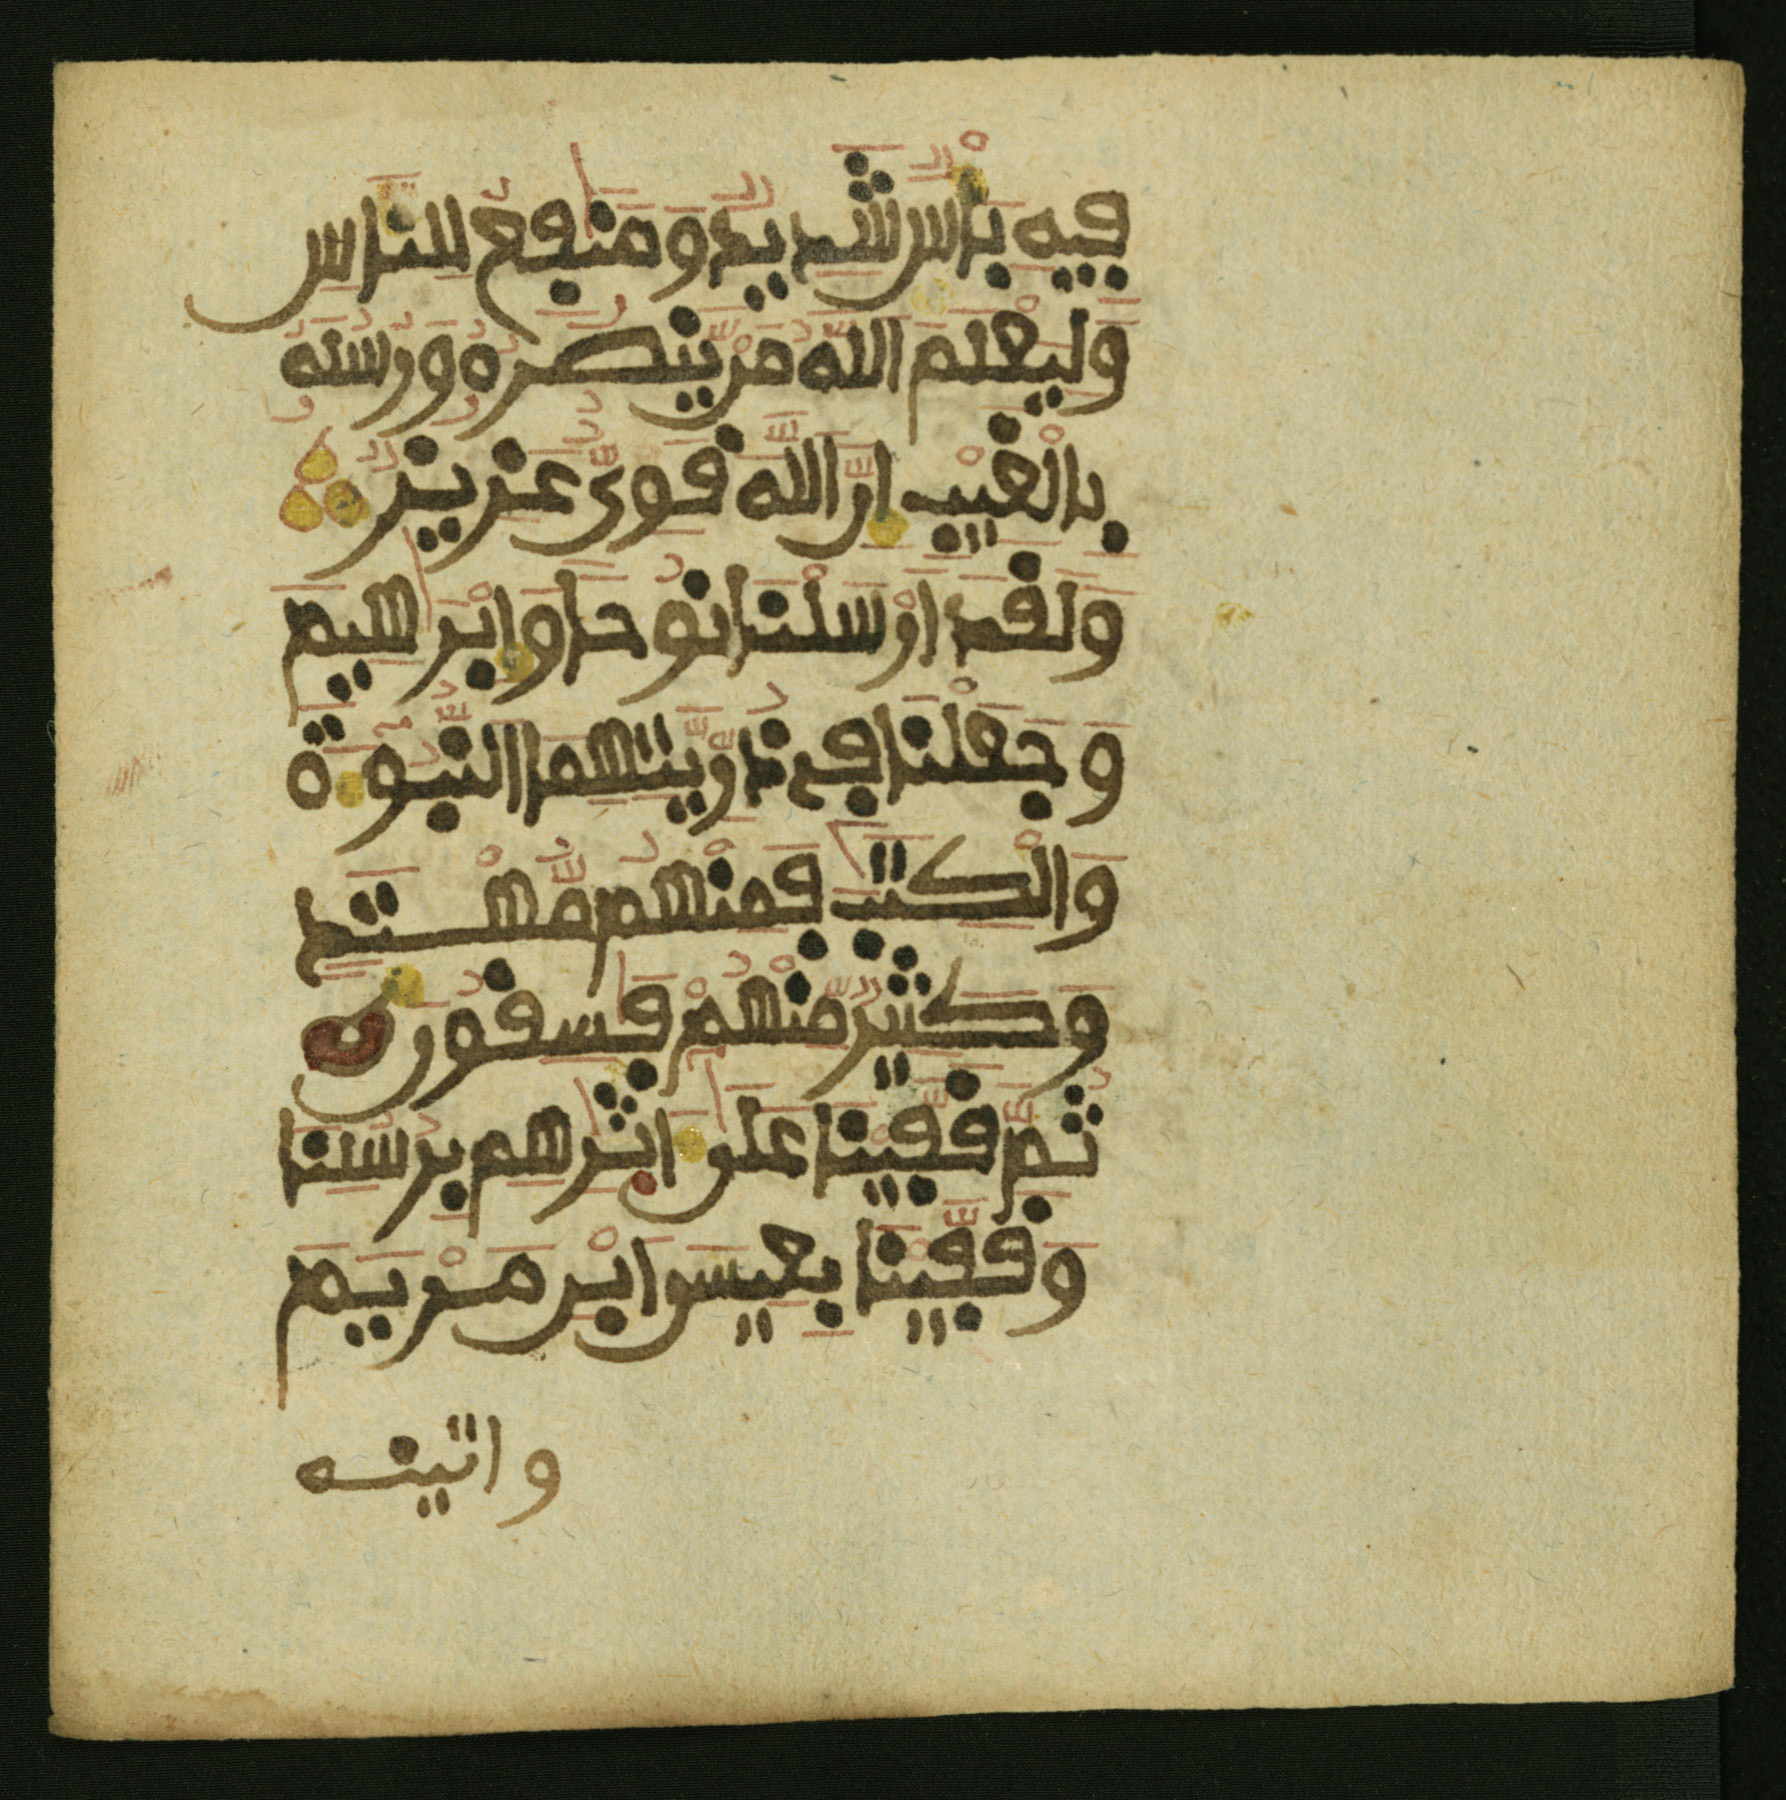 فِيهِ بَأْسٌ شَدِيدٌ وَمَنَٰفِعُ لِلنَّاسِ
وَلِيَعْلَمَ اللَّهُ مَنْ يَّنصُرُهُ وَرُسُلَهُ
بِالْغَيْبِ إِنَّ اللَّهَ قَوِيٌّ عَزِيزٌ
وَلَقَدَ اَرْسَلْنَا نُوحًا وَإِبْرَٰهِيمَ
وَجَعَلْنَا فِي ذُرِّيَّتِهِمَا النُّبُوَّةَ
وَالْكِتَٰبَ فَمِنْهُم مُّهْتَدٍ
وَكَثِيرٌ مِّنْهُمْ فَٰسِقُونَ
ثُمَّ قَفَّيْنَا عَلَىٰ ءَاثَٰرِهِم بِرُسُلِنَا
وَقَفَّيْنَا بِعِيسَى ابْنِ مَرْيَمَ
واتينه